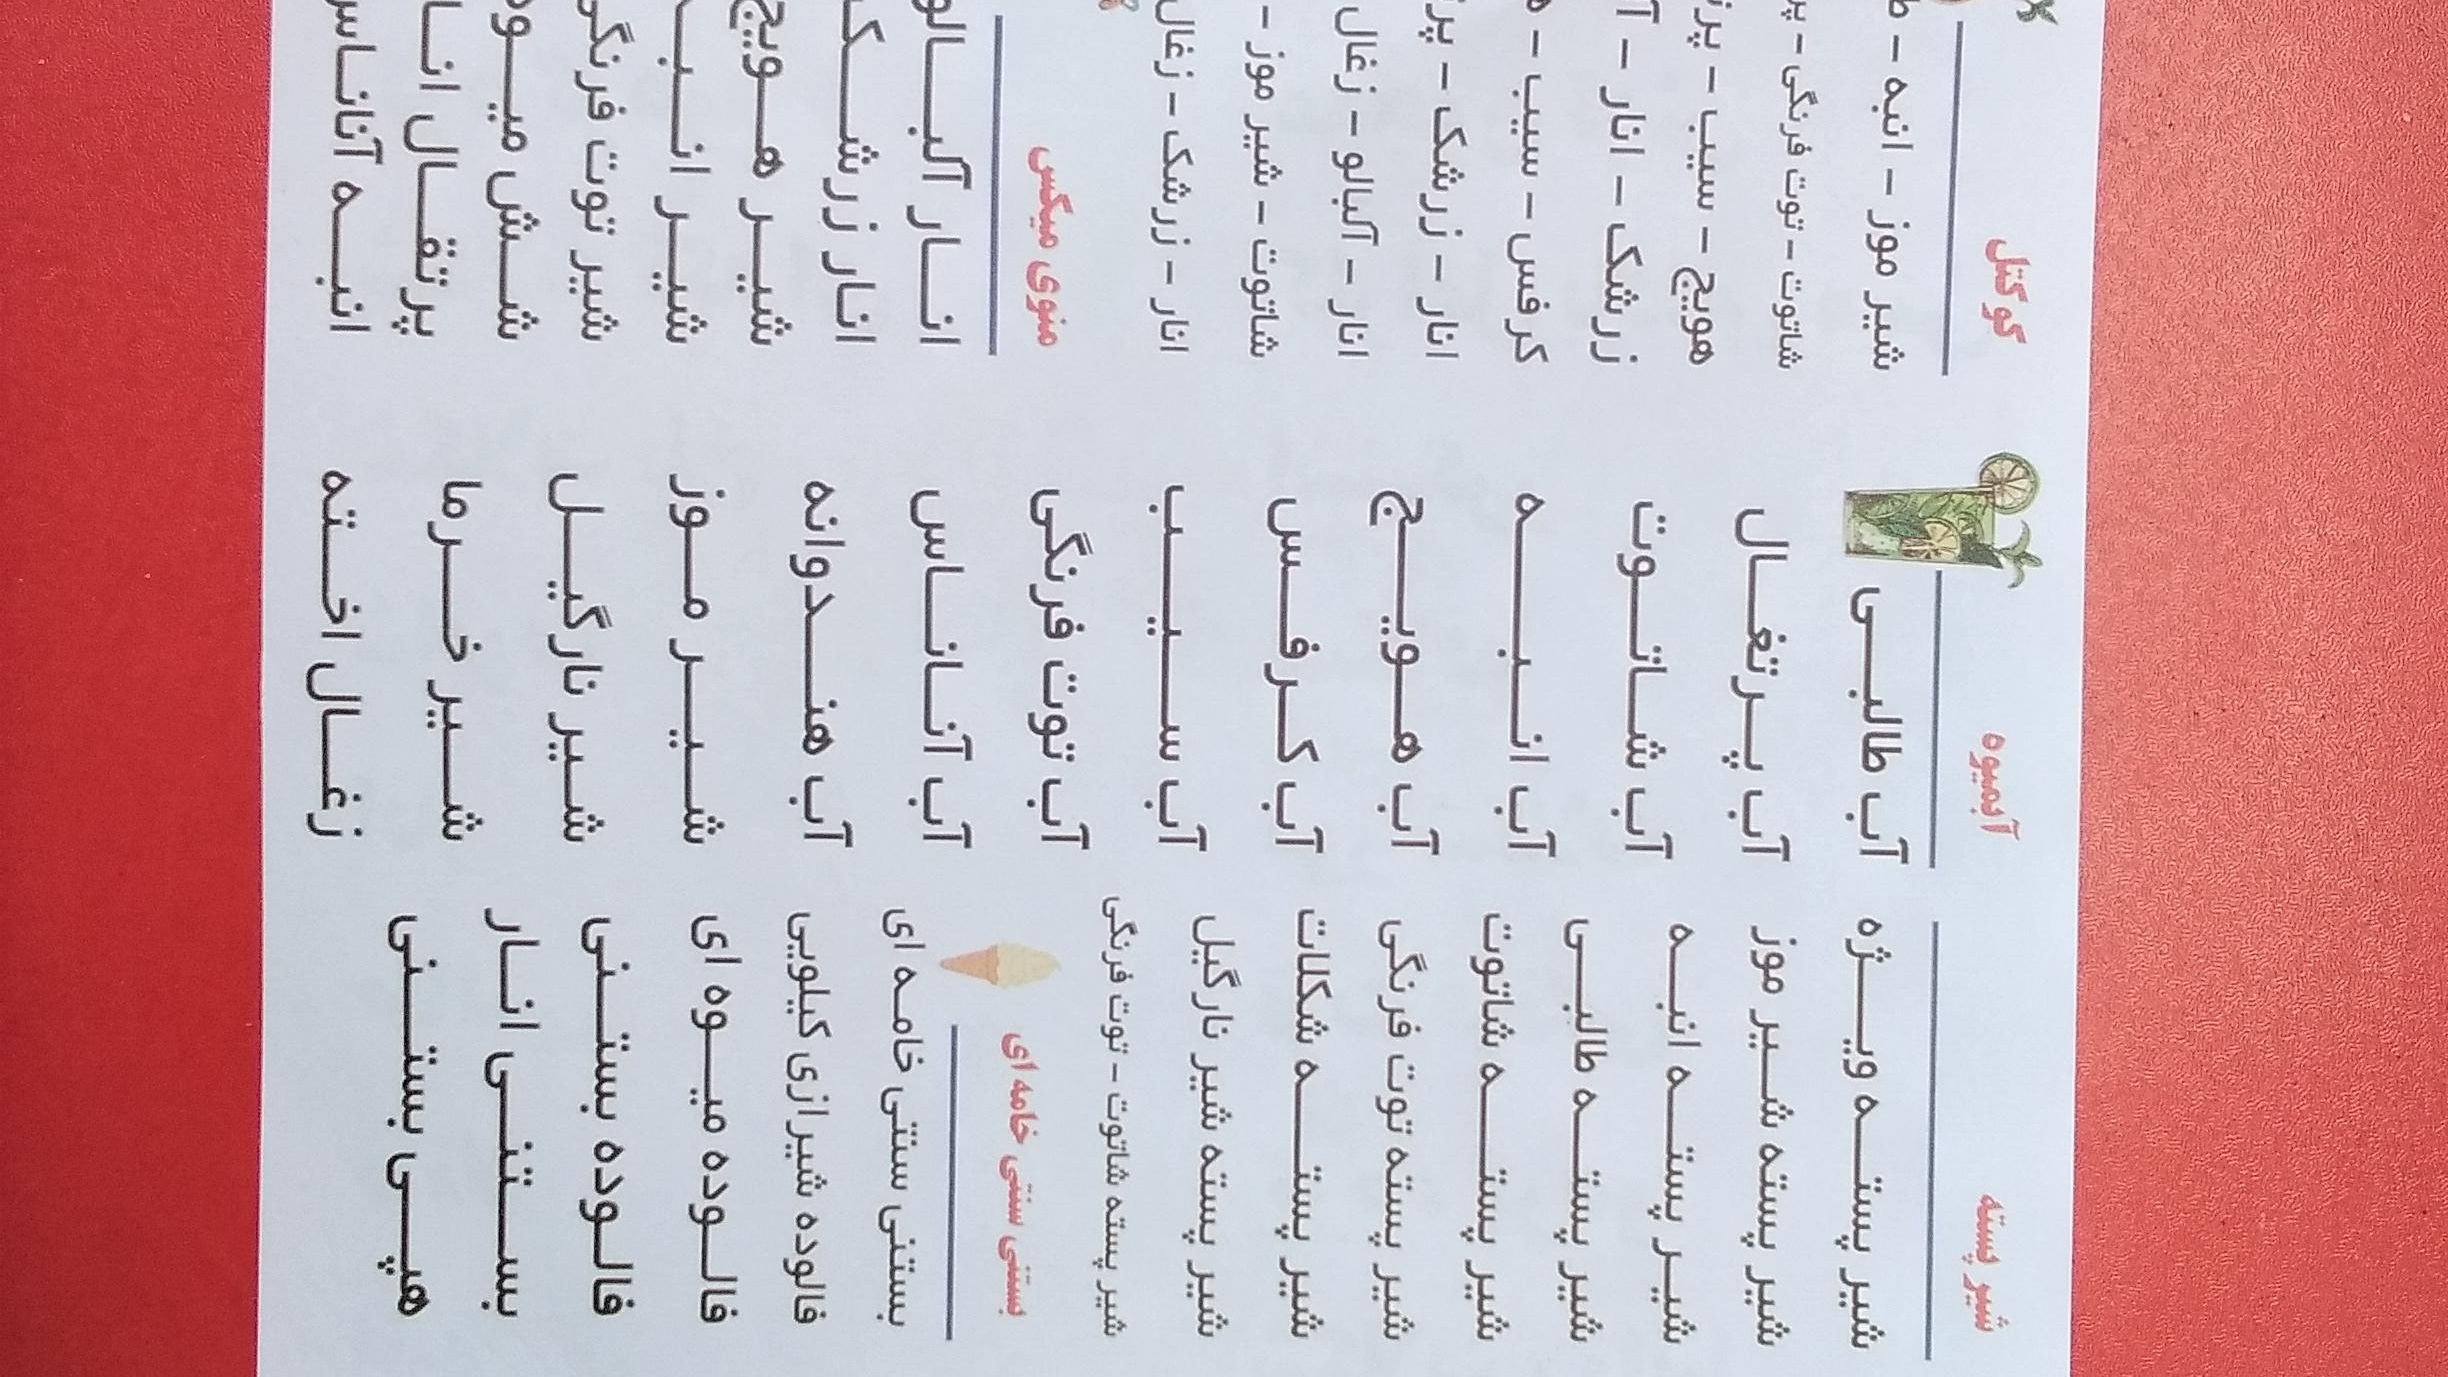 شیر پسته
شیر پسته ویژه
شیر پسته شیر موز
شیر پسته انبه
شیر پسته طالبی
شیر پسته شاتوت
شیر پسته توت فرنگی
شیر پسته شکلات
شیر پسته شیر نارگیل
شیر پسته شاتوت - توت فرنگی
بستنی سنتی خامه ای
بستنی سنتی خامه ای
فالوده شیرازی کیلویی
فالوده میوه ای
فالوده بستنی
بستنی انار
هپی بستنی
آبمیوه
آب طالبی
آب پرتغال
آب شاتوت
آب انبه
آب هویج
آب کرفس
آب سیب
آب توت فرنگی
آب آناناس
آب هندوانه
شیر موز
شیر نارگیل
شیر خرما
زغال اخته
کوکتل
شیر موز - انبه -
شاتوت - توت فرنگی -
هویج - سیب -
زرشک - انار -
کرفس - سیب -
انار - زرشک -
انار - آلبالو - زغال
شاتوت - شیر موز -
انار - زرشک - زغال
منوی میکس
انار آلبالو
انار زرشک
شیر هویج
شیر
شیر توت فرنگی
شش میوه
پرتقال
انبه آناناس